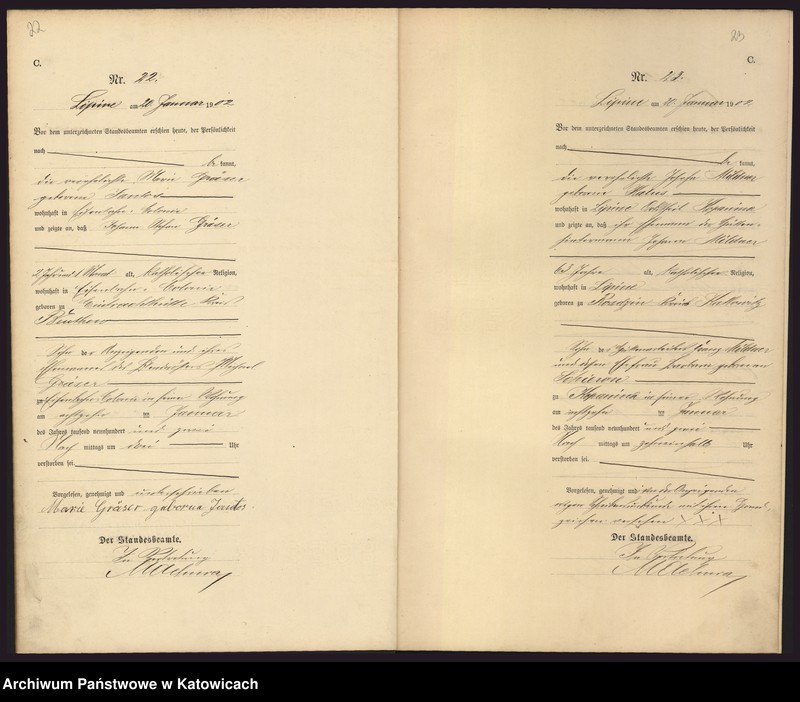 22
C.
Nr. 22.
Lipine am 20. Januar 1902
Vor dem unterzeichneten Standesbeamten erschien heute, der Persönlichkeit
nach be kannt,
die verehelichte Maria Gräser
geborene Jantos
wohnhaft in Eisenbahn-Colonie
und zeigte an, daß Johann Gräser
2 Jahre 1 Monat alt, katholischer Religion,
wohnhaft in Eisenbahn-Colonie
geboren zu Kreis
Beuthen
Sohn der Anzeigenden und ihres
Ehemannes des
Gräser
zu Eisenbahn-Colonie in seiner Wohnung
am achtzehn ten Januar
des Jahres tausend neunhundert und zwei
Nach mittags um drei Uhr
verstorben sei.
Vorgelesen, genehmigt und unterschrieben
Maria Gräser geborena Jantos.
Der Standesbeamte.
In Vertretung
23
C.
Nr. 23.
Lipine am 20. Januar 1902
Vor dem unterzeichneten Standesbeamten erschien heute, der Persönlichkeit
nach be kannt,
die verehelichte Mildner
geborene
wohnhaft in Lipine Kopanina
und zeigte an, daß ihr Ehemann der
Johann Mildner
Jahre alt, katholischer Religion,
wohnhaft in Lipine
geboren zu Rosdzin Kreis Kattowitz
Sohn des Franz Mildner
und dessen Ehefrau geborenen
zu Kopanina in seiner Wohnung
am achtzehn ten Januar
des Jahres tausend neunhundert und zwei
Nach mittags um zehneinhalb Uhr
verstorben sei.
Vorgelesen, genehmigt und von der Anzeigenden
wegen Schreibensunkunde mit ihrem Hand-
zeichen versehen XXX
Der Standesbeamte.
In Vertretung
Archiwum Państwowe w Katowicach